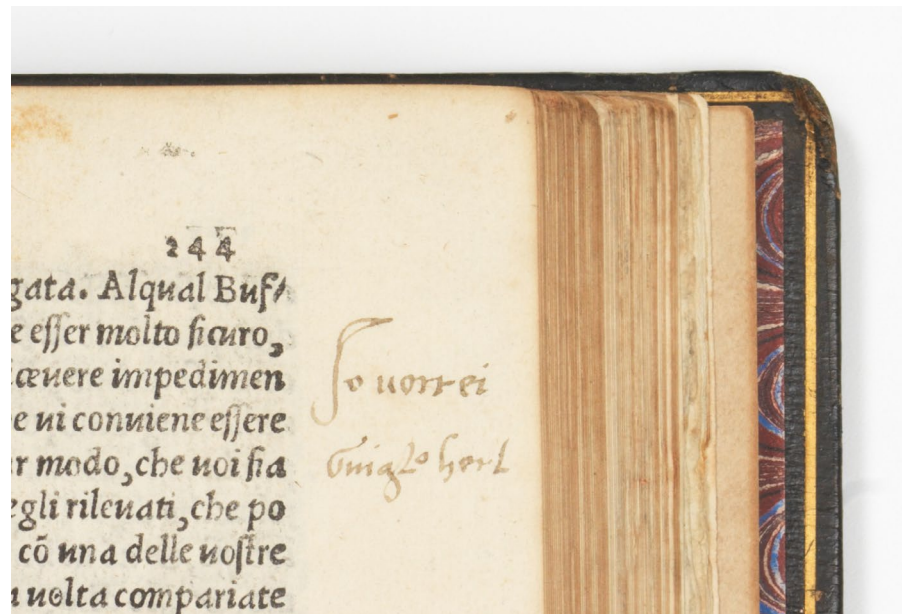 244
gata. Alqual Buf/
e esser molto sicuro,
ceuere impedimen
e ui conuiene essere
r modo, che uoi sia
egli rileuati, che po
cō una delle uostre
uolta compariate
Jo uorrei
Guigl.o herl